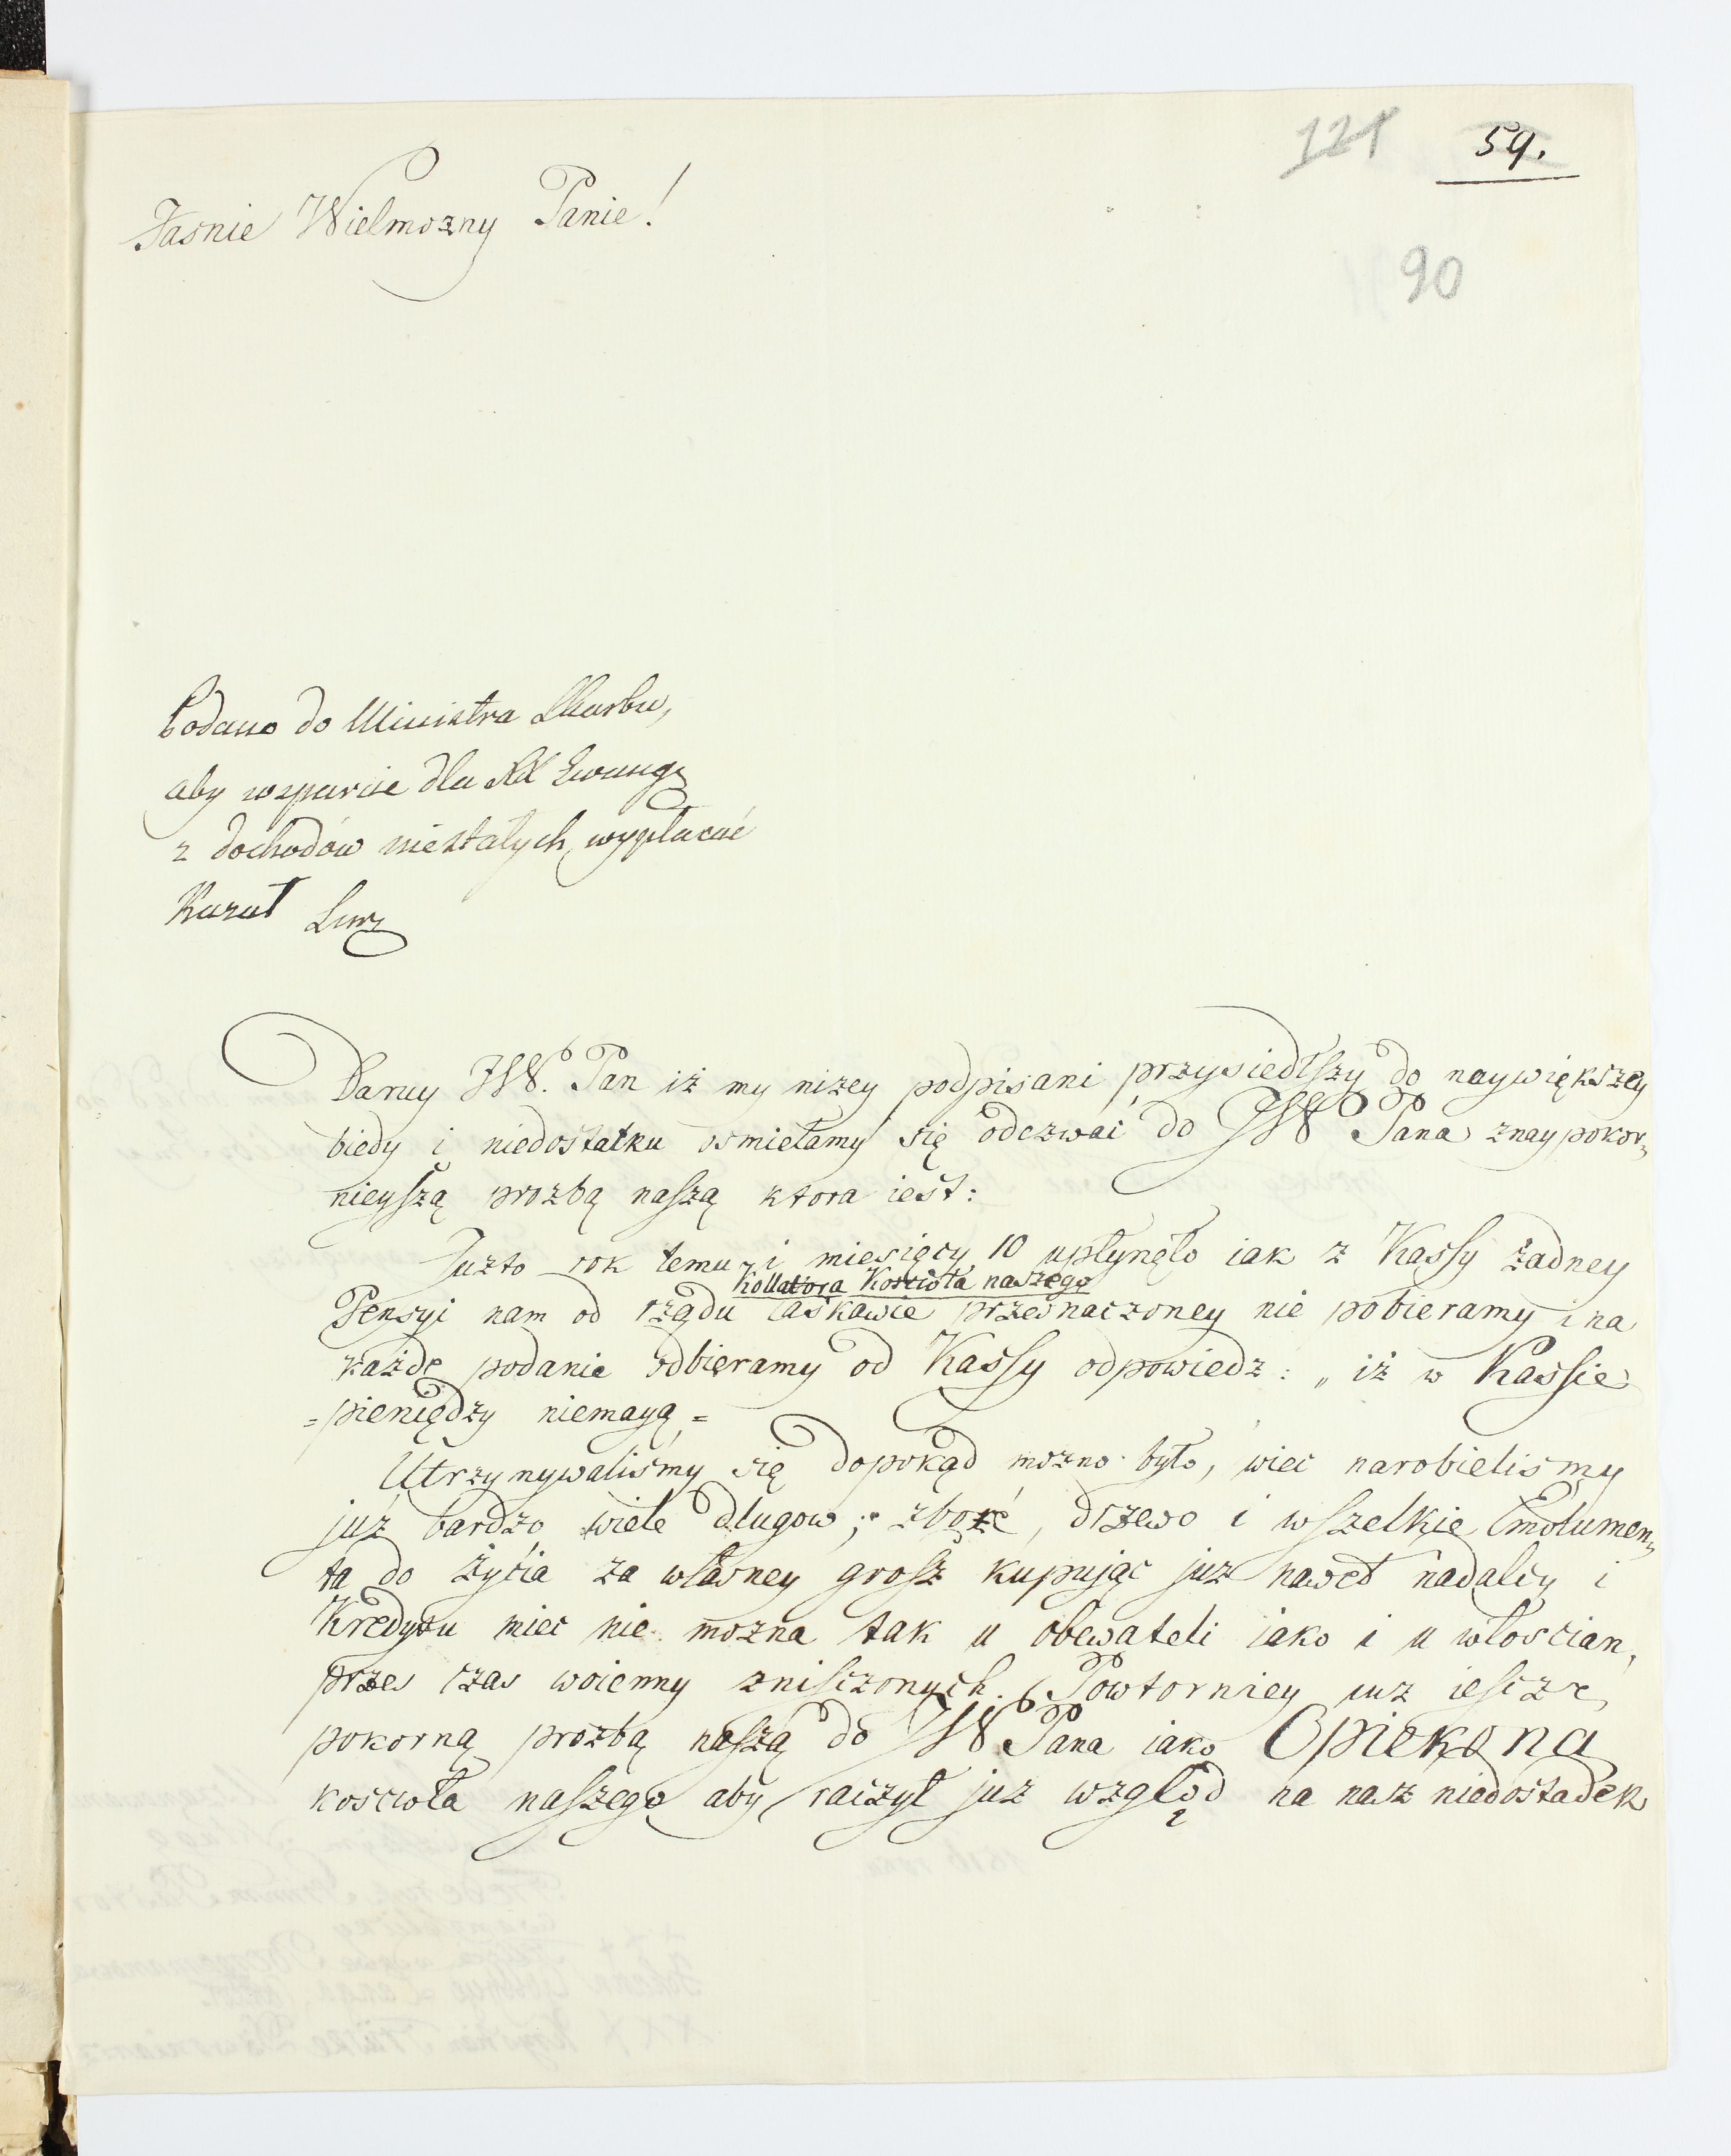 121 59.
90
Jasnie Wielmozny Panie!
Podano do Ministra Skarbu,
aby wsparcie dla XX Ewang:
z dochodów niestałych wypłacać
Kazał
Daruy JW. Pan iż my nizey podpisani przysiedłszy do naywiększey
biedy i niedostatku osmielamy się odezwać do JW Pana znaypokor„
nieyszą prozbą naszą ktora iest:
Juzto rok temu i miesięcy 10 upłynęło iak z Kassy żadney
Kollatora Kościoła naszego
Pensyi nam od rządu łaskawie przeznaczoney nie pobieramy i na
każde podanie odbieramy od Kassy odpowiedz: „ iż w Kassie
= pieniędzy niemayą =
Utrzymywaliśmy się dopokąd mozno było, wiec narobielismy
już bardzo wiele długow; zboże, drzewo i wszelkie Emolumen„
ta do życia za własney grosz kupując juz nawet nadalcy i
Kredytu miec nie mozna tak u obewateli iako i u włoscian,
przes czas woienny znisczonych. Powtorniey iuz iescze
pokorną prozbą naszą do JW Pana iako Opiekona
koscioła naszego aby raczył juz wzgląd na nasz niedostadek